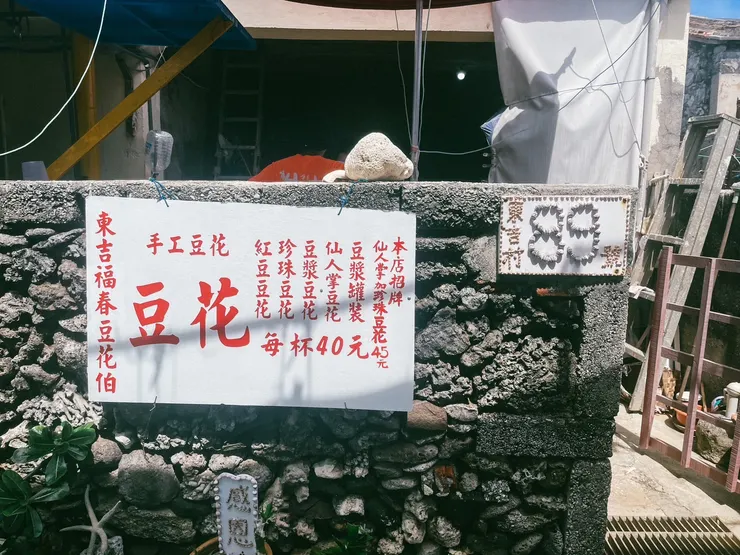 東吉福春豆花伯
手工豆花
豆花
紅豆豆花
珍珠豆花
豆漿豆花
仙人掌豆花
豆漿罐裝
每杯40元
本店招牌
仙人掌加珍珠豆花45元
東吉村
89
號
感恩